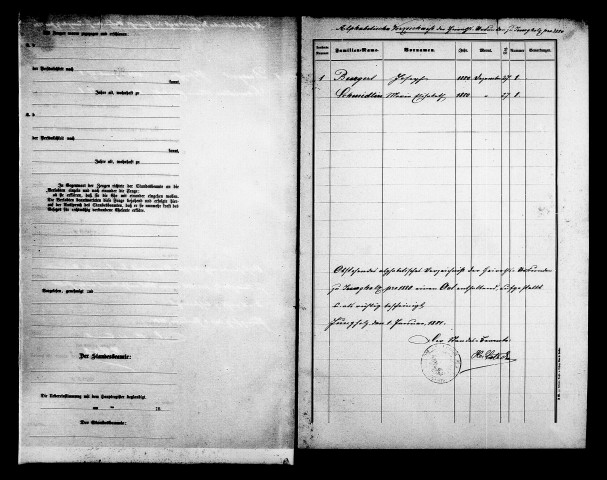 der Persönlichkeit nach
kannt,
Jahre alt, wohnhaft zu
der Persönlichkeit nach
kannt,
Jahre alt, wohnhaft zu
In Gegenwart der Zeugen richtete der Standesbeamte an die
Verlobten einzeln und nach einander die Frage:
ob sie erklären, daß sie die Ehe mit einander eingehen wollen.
Die Verlobten beantworteten diese Frage bejahend und erfolgte hier-
auf der Ausspruch des Standesbeamten, daß er sie nunmehr kraft des
Gesetzes für rechtmäßig verbundene Eheleute erkläre.
Vorgelesen, genehmigt und
Der Standesbeamte:
Die Uebereinstimmung mit dem Hauptregister beglaubigt.
am ten 18
Der Standesbeamte:
Alphabetisches Verzeichniß der Heiraths-Urkunden zu Jungholz pro 1880
Familien-Name. Vornamen. Jahr. Monat. Tag. Nummer Bemerkungen.
1 Bungert Joseph 1880 Dezember 27 1
Schmidlin Maria Elisabeth 1880 " 27 1
Obstehendes alphabetisches Verzeichniß der Heiraths-Urkunden
zu Jungholz pro 1880 einen Act enthaltend, aufgestellt
u. als richtig bescheinigt.
Jungholz, den 1. Januar, 1881.
Der Standes-Beamte: